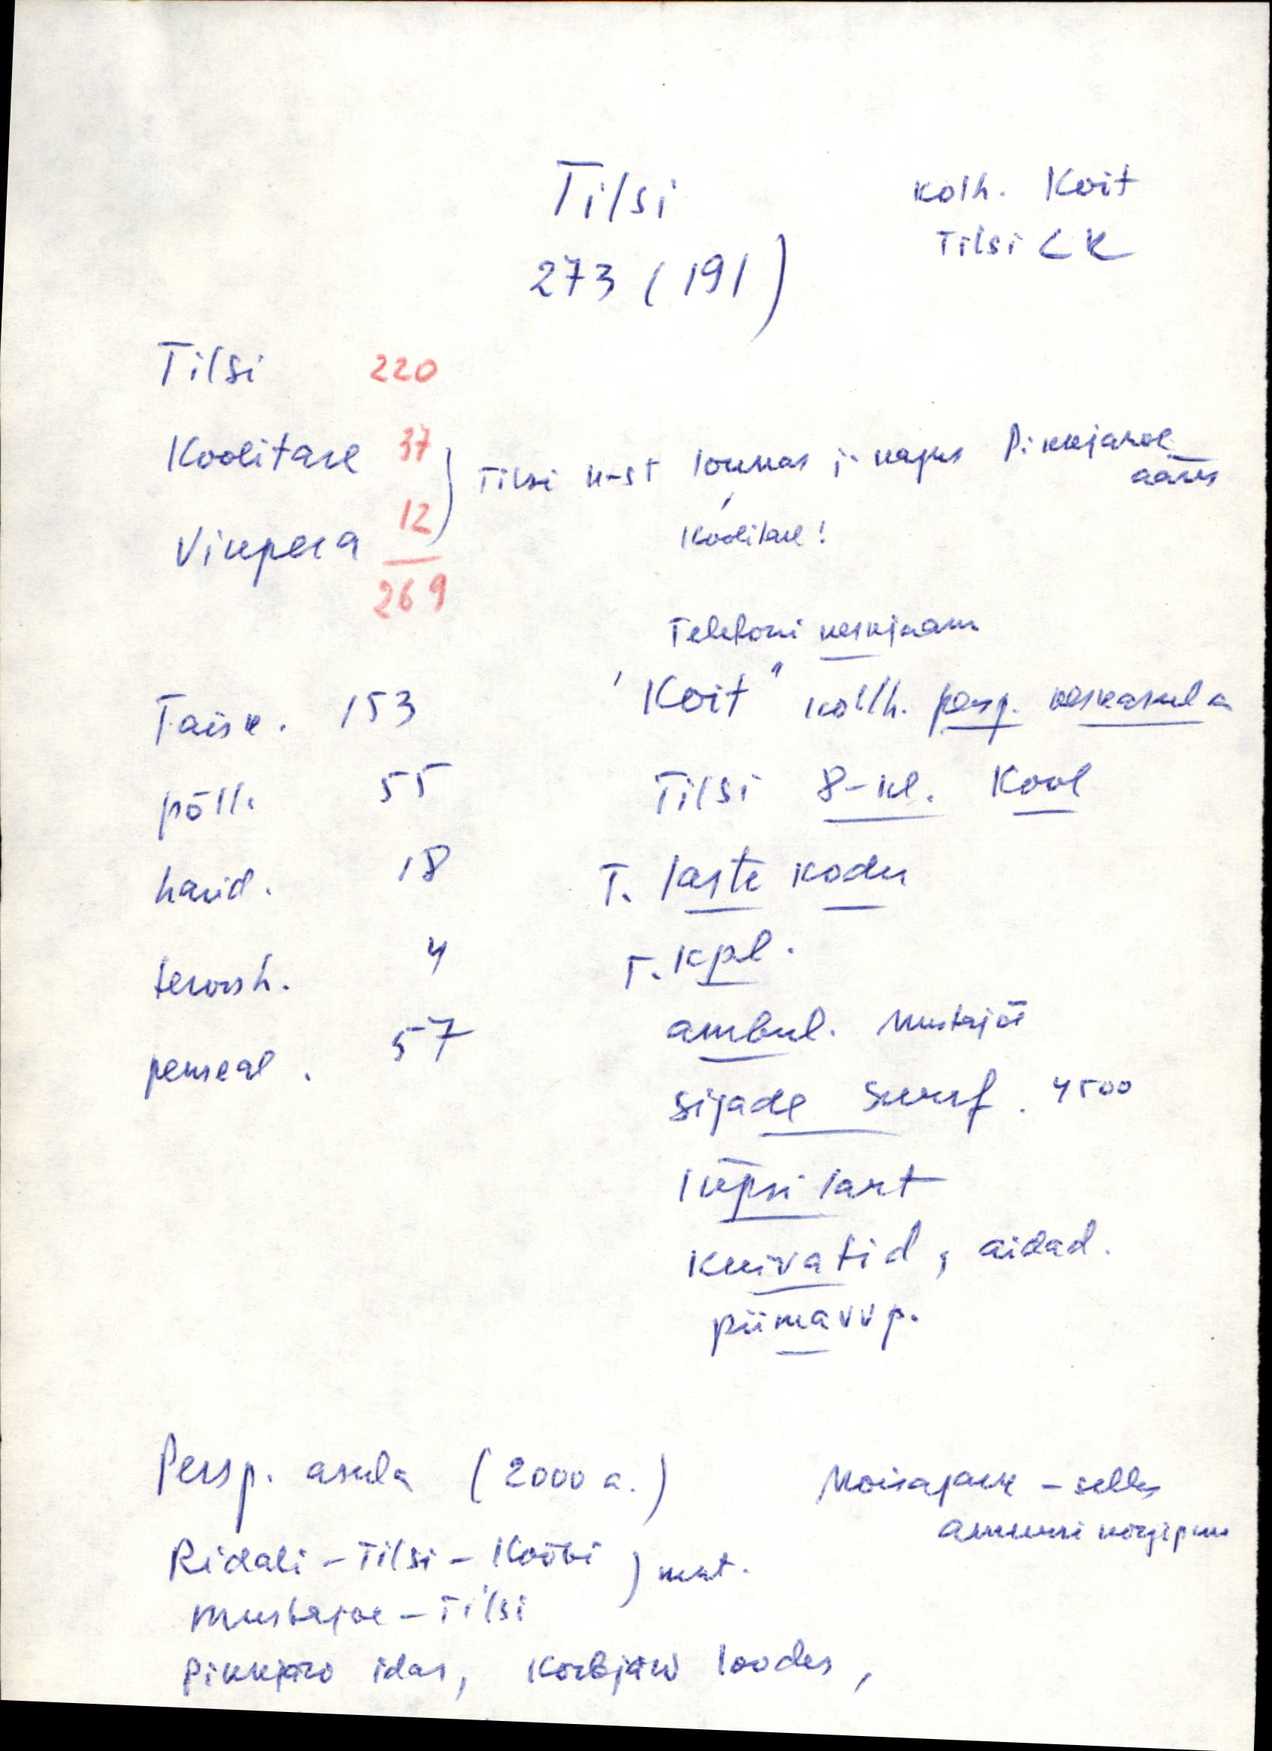 Tilsi
273 (191)
kolh. Koit
Tilsi CK
Tilsi 220
Koolitare 37
Viupera 12
269
Tilsi k-st lõunas j. kagus Pikkjärve
ääres
Koolitare!
Telefoni keskjaam
"Koit" kolh. persp. keskasula
Tilsi 8-kl. Kool
T. laste kodu
T. kpl.
ambul. Mustajõe
sigade suurf. 4500
lüpsilaut
Kuivatid, aidad.
piimavvp.
Täisk. 153
põll. 55
harid. 18
tervish. 4
penseal. 57
Persp. asula (2000 a.)
Ridali - Tilsi - Kööbi ) mnt.
Mustajõe - Tilsi
Pikkjärv idas, Kõrbjärv loodes,
Mõisapark - selles